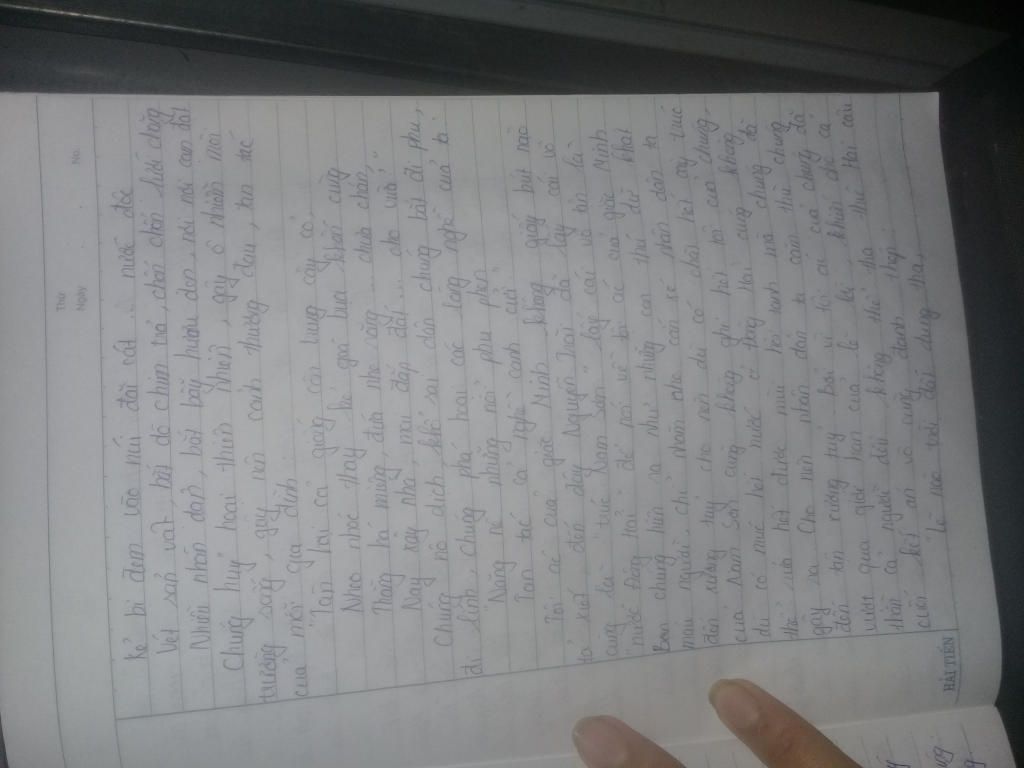 Thứ
Ngày
No.
Kẻ bị đem vào núi đãi cát ... nước độc
Vét sản vật, bắt dò chim trả, chốn chốn lưới chăng
Nhiễu nhân dân, bắt bẫy hươu đen, nơi nơi cạm đặt
Chúng huỷ hoại thiên nhiên, gây ô nhiễm môi
trường sống, gây nên cảnh thương đau, tan tác
của mỗi gia đình
"Tàn hại cả giống côn trùng cây cỏ,
Nheo nhóc thay kẻ goá bụa khốn cùng
Thằng há miệng, đứa nhe răng ... chưa chán,
Nay xây nhà, mai đắp đất ... cho vừa"
Chúng nô dịch, khổ sai dân chúng bắt đi phu,
đi lính. Chúng phá hoại các làng nghề của ta:
"Nặng nề những nỗi phu phen
Tan tác cả nghề canh cửi"
Tội ác của giặc Minh không giấy bút nào
tả xiết đến đây Nguyễn Trãi đã lấy cái vô
cùng là "trúc Nam Sơn" lấy cái vô tận là
"nước Đông Hải" để nói về tội ác của giặc Minh
Bọn chúng hiện ra như những con thú dữ khát
máu người, chỉ nhăm nhe cắn xé nhân dân ta
đến xương tuỷ cho nên dù có chặt hết cây trúc
của Nam Sơn cũng không ghi hết tội của chúng,
dù có múc hết nước ở Đông Hải cũng không
thể rửa hết được mùi hôi tanh mà chúng đã
gây ra. Cho nên nhân dân ta căm thù chúng
đến tận xương tuỷ bởi vì tội ác của chúng đã
vượt qua giới hạn của lẽ trời, khiến cho cả
thần cả người đều không thể tha thứ. Hai câu
cuối kết án vô cùng đanh thép:
"Lẽ nào trời đất dung tha,
HẢI TIẾN